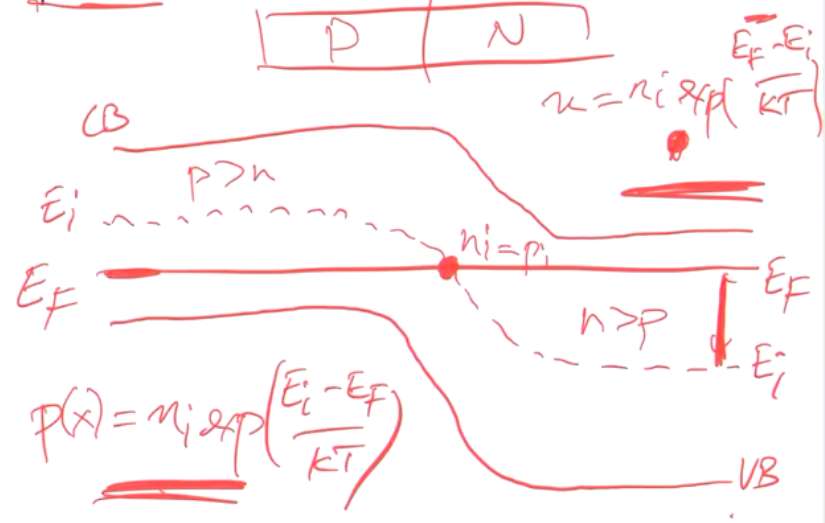 P N
E_F - E_i
n = n_i exp( / KT )
CB
p>n
E_i
n_i = p_i
E_F
E_F
n>p
E_i
p(x) = n_i exp( (E_i - E_F) / KT )
VB